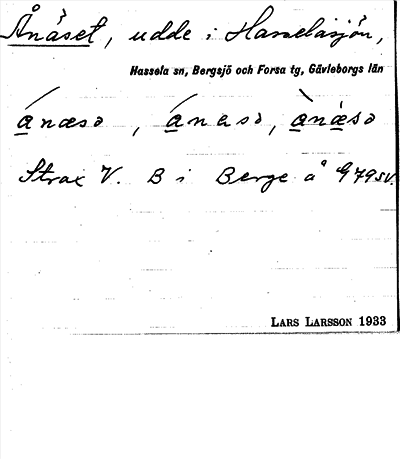 Ånäset, udde i Hasselasjön,
Hassela sn, Bergsjö och Forsa tg, Gävleborgs län
ánæsə, ánasə, ànæ̀sə
Strax V. B i Berge å G79SV.
LARS LARSSON 1933